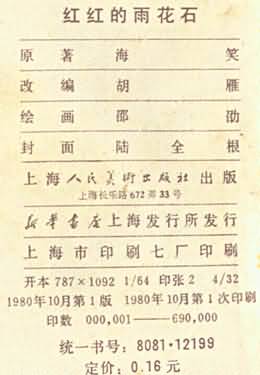 红红的雨花石
原著 海笑
改编 胡雁
绘画 邵劭
封面 陆全根
上海人民美术出版社出版
上海长乐路672弄33号
新华书店上海发行所发行
上海市印刷七厂印刷
开本 787×1092 1/64 印张 2 4/32
1980年10月第1版 1980年10月第1次印刷
印数 000,001——690,000
统一书号：8081·12199
定价：0.16元